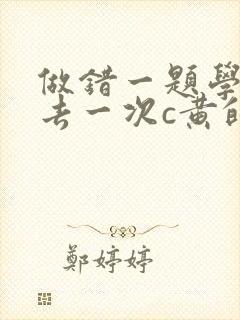 做錯一題學
去一次c黄自
鄭婷婷